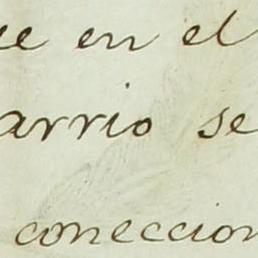 ue en el
arrio se
coneccion